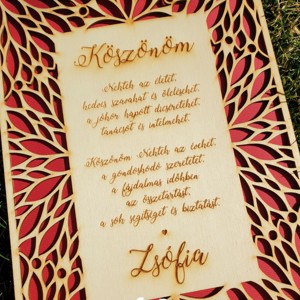 Köszönöm
Nektek az életet,
kedves szavakat és öleléseket,
a jókor kapott dicséreteket,
tanácsot és intelmeket.
Köszönöm Nektek az éveket,
a gondoskodó szeretetet,
a fájdalmas időkben
az összetartást,
a sok segítséget és bíztatást.
Zsófia